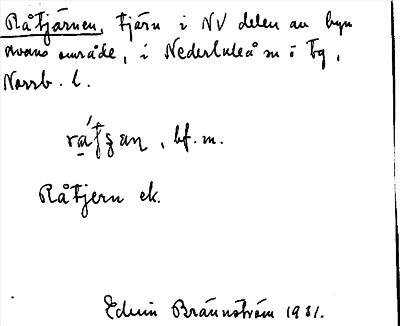 Råtjärnen, tjärn i NV delen av byn
Avans område, i Nederluleå sn o tg,
Norrb. l.
bf. m.
Råtjern ek.
Edvin Brännström 1931.